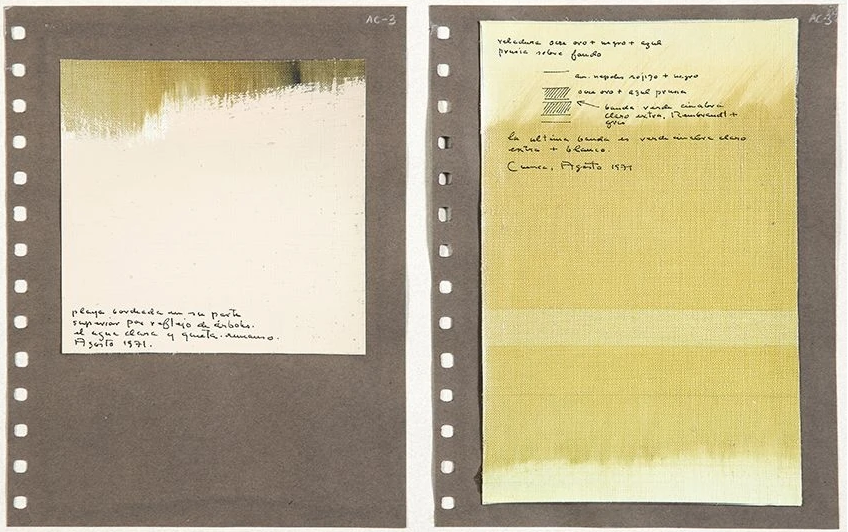 AC-3
playa bordeada en su parte
superior por reflejo de árboles.
el agua clara y quieta. remanso.
Agosto 1971.
AC-3
veladura ocre oro + negro + azul
prusia sobre fondo
am. napoles rojizo + negro
ocre oro + azul prusia
banda verde cinabrio
claro extra, Rembrandt +
gris
la ultima banda es verde cinabrio claro
extra + blanco.
Cuenca, Agosto 1971